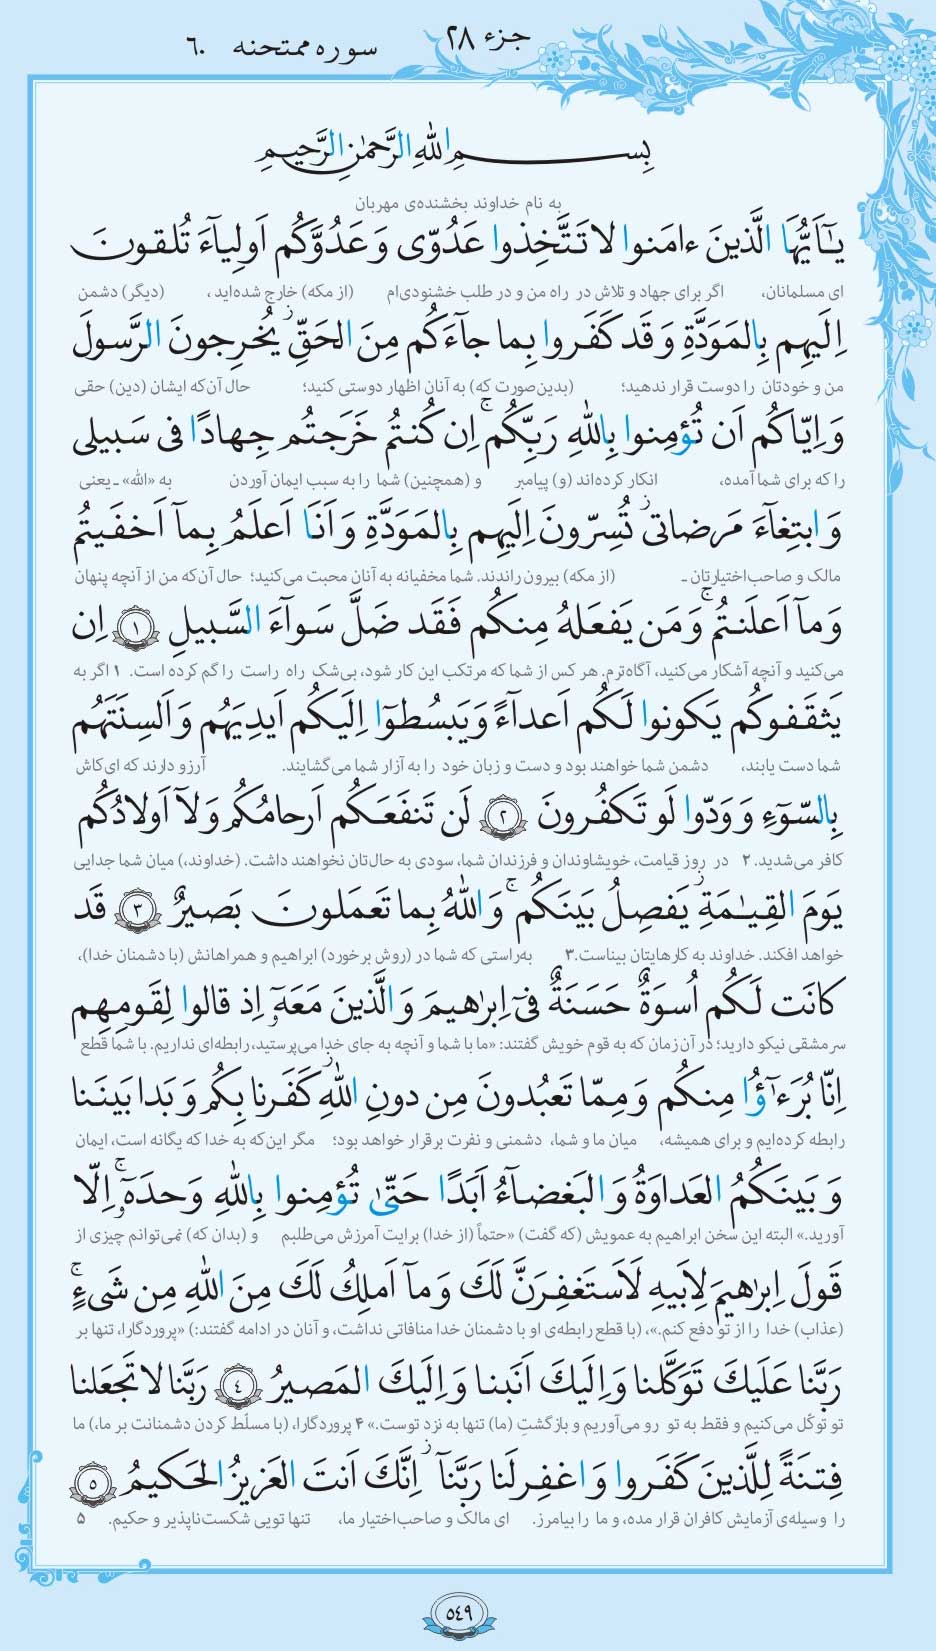 جزء ۲۸
سوره ممتحنه ٦٠
بِسمِ اللهِ الرَّحمٰنِ الرَّحيمِ
به نام خداوند بخشنده‌ی مهربان
يـٰٓأَيُّهَا الَّذينَ ءامَنوا لا تَتَّخِذوا عَدُوّی وَ عَدُوَّكُم اَولِيآءَ تُلقونَ
ای مسلمانان، اگر برای جهاد و تلاش در راه من و در طلب خشنودی‌ام (از مکه) خارج شده‌اید، (دیگر) دشمن
اِلَيهِم بِالمَوَدَّةِ وَ قَد كَفَروا بِما جآءَكُم مِنَ الحَقِّ ۙ يُخرِجونَ الرَّسولَ
من و خودتان را دوست قرار ندهید؛ (بدین‌صورت که) به آنان اظهار دوستی کنید؛ حال آن‌که ایشان (دین) حقی
وَ اِيّاكُم اَن تُؤمِنوا بِاللهِ رَبِّكُم ۚ اِن كُنتُم خَرَجتُم جِهادًا فی سَبيلی
را که برای شما آمده، انکار کرده‌اند (و) پیامبر و (همچنین) شما را به سبب ایمان آوردن به «الله» ـ یعنی
وَ ابتِغآءَ مَرضاتی ۚ تُسِرّونَ اِلَيهِم بِالمَوَدَّةِ وَ اَنَا اَعلَمُ بِمآ اَخفَيتُم
مالک و صاحب‌اختیارتان ـ (از مکه) بیرون راندند. شما مخفیانه به آنان محبت می‌کنید؛ حال آن‌که من از آنچه پنهان
وَ مآ اَعلَنتُم ۚ وَ مَن يَفعَلهُ مِنكُم فَقَد ضَلَّ سَوآءَ السَّبيلِ ١ اِن
می‌کنید و آنچه آشکار می‌کنید، آگاه‌ترم. هر کس از شما که مرتکب این کار شود، بی‌شک راه راست را گم کرده است. ۱ اگر به
يَثقَفوكُم يَكونوا لَكُم اَعدآءً وَ يَبسُطوٓا اِلَيكُم اَيدِيَهُم وَ اَلسِنَتَهُم
شما دست یابند، دشمن شما خواهند بود و دست و زبان خود را به آزار شما می‌گشایند. آرزو دارند که ای‌کاش
بِالسّوٓءِ وَ وَدّوا لَو تَكفُرونَ ٢ لَن تَنفَعَكُم اَرحامُكُم وَ لآ اَولادُكُم
کافر می‌شدید. ۲ در روز قیامت، خویشاوندان و فرزندان شما، سودی به حال‌تان نخواهند داشت. (خداوند،) میان شما جدایی
يَومَ القِيـٰمَةِ ۚ يَفصِلُ بَينَكُم ۚ وَ اللهُ بِما تَعمَلونَ بَصيرٌ ٣ قَد
خواهد افکند. خداوند به کارهایتان بیناست.۳ به‌راستی که شما در (روش برخورد) ابراهیم و همراهانش (با دشمنان خدا)،
كانَت لَكُم اُسوَةٌ حَسَنَةٌ فیٓ اِبراهيمَ وَ الَّذينَ مَعَهٓ اِذ قالوا لِقَومِهِم
سرمشقی نیکو دارید؛ در آن زمان که به قوم خویش گفتند: «ما با شما و آنچه به جای خدا می‌پرستید، رابطه‌ای نداریم. با شما قطع
اِنّا بُرَءٰٓؤُا مِنكُم وَ مِمّا تَعبُدونَ مِن دونِ اللهِ ۚ كَفَرنا بِكُم وَ بَدا بَينَنا
رابطه کرده‌ایم و برای همیشه، میان ما و شما، دشمنی و نفرت برقرار خواهد بود؛ مگر این‌که به خدا که یگانه است، ایمان
وَ بَينَكُمُ العَداوَةُ وَ البَغضآءُ اَبَدًا حَتّیٰ تُؤمِنوا بِاللهِ وَحدَهٓ ۚ اِلّا
آورید.» البته این سخن ابراهیم به عمویش (که گفت) «حتماً (از خدا) برایت آمرزش می‌طلبم و (بدان که) نمی‌توانم چیزی از
قَولَ اِبراهيمَ لِاَبيهِ لَاَستَغفِرَنَّ لَكَ وَ مآ اَملِكُ لَكَ مِنَ اللهِ مِن شَیءٍ ۚ
(عذاب) خدا را از تو دفع کنم.»، (با قطع رابطه‌ی او با دشمنان خدا منافاتی نداشت، و آنان در ادامه گفتند:) «پروردگارا، تنها بر
رَبَّنا عَلَيكَ تَوَكَّلنا وَ اِلَيكَ اَنَبنا وَ اِلَيكَ المَصيرُ ٤ رَبَّنا لا تَجعَلنا
تو توکّل می‌کنیم و فقط به تو رو می‌آوریم و بازگشتِ (ما) تنها به نزد توست.» ۴ پروردگارا، (با مسلّط کردن دشمنانت بر ما،) ما
فِتنَةً لِلَّذينَ كَفَروا وَ اغفِر لَنا رَبَّنآ ۚ اِنَّكَ اَنتَ العَزيزُ الحَكيمُ ٥
را وسیله‌ی آزمایش کافران قرار مده، و ما را بیامرز. ای مالک و صاحب‌اختیار ما، تنها تویی شکست‌ناپذیر و حکیم. ۵
٥٤٩